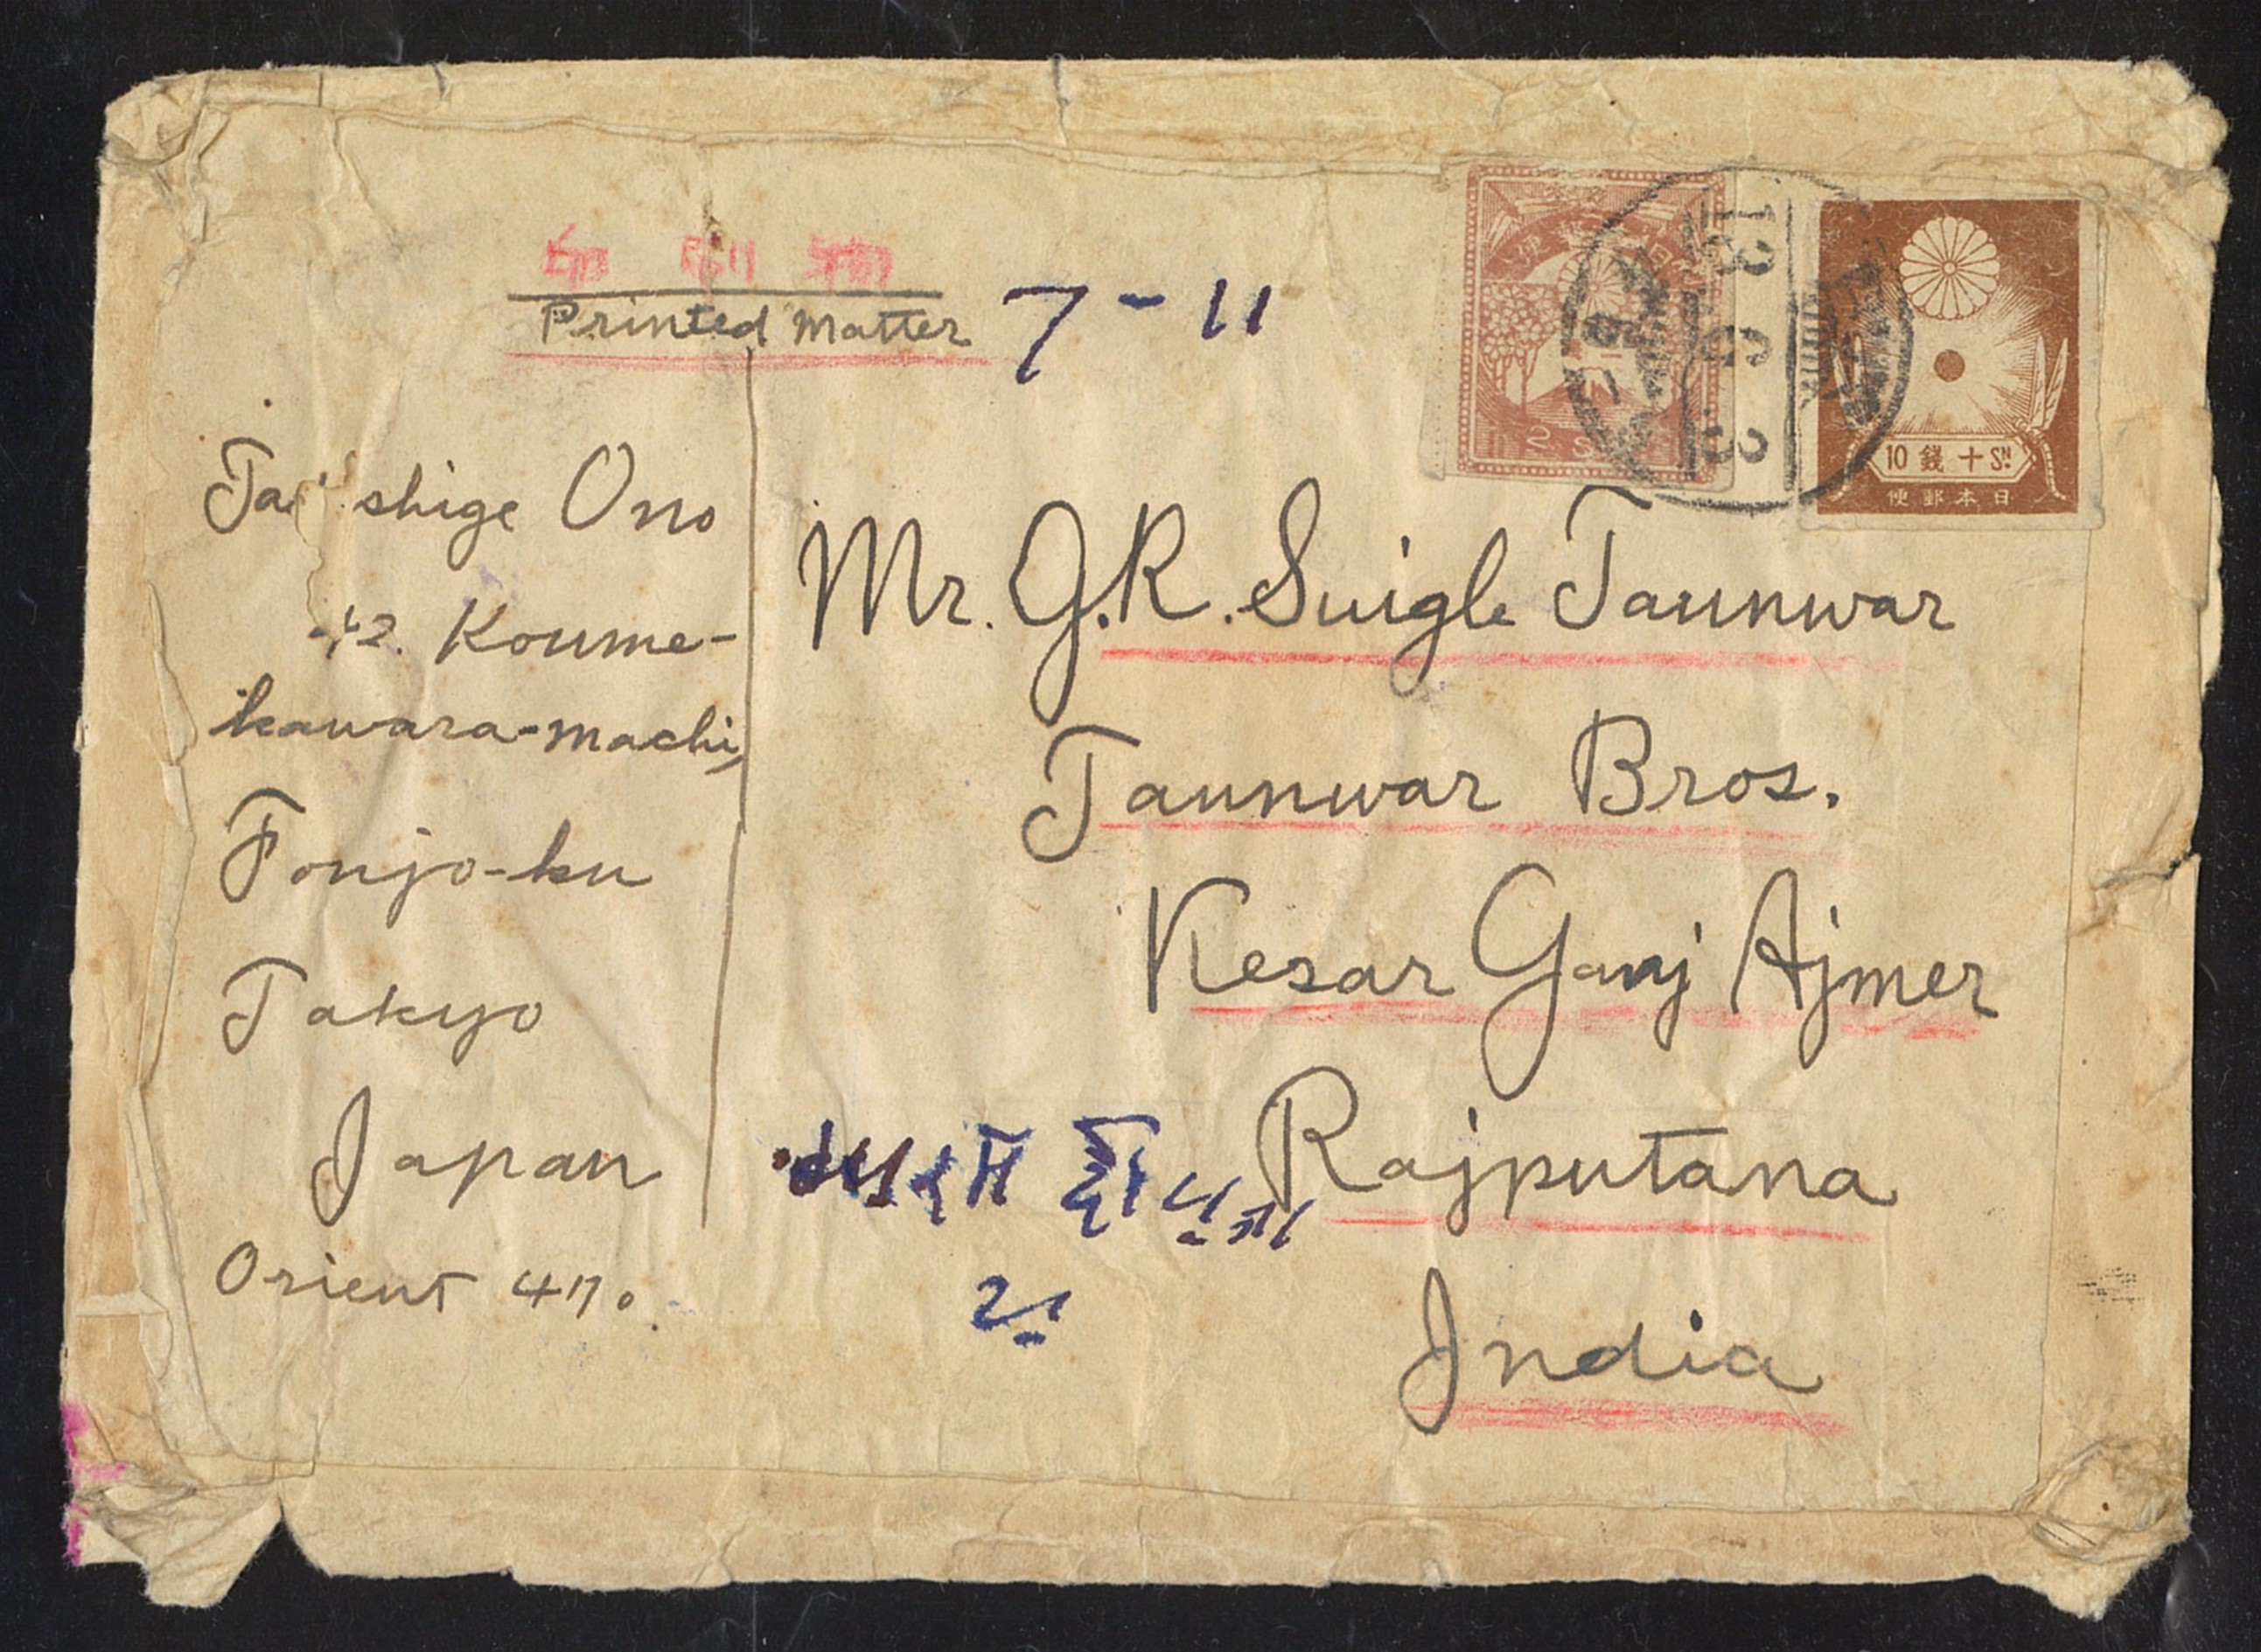 印刷物
Printed Matter
7-11
shige Ono
42. Koume-
kawara-machi,
Fonjo-ku
Takyo
Japan
Orient 47.
Mr. G.R. Suigle Taunwar
Taunwar Bros.
Kesar Ganj Ajmer
Rajputana
India
13 6 3
2
10 錢十 Sn.
便郵本日